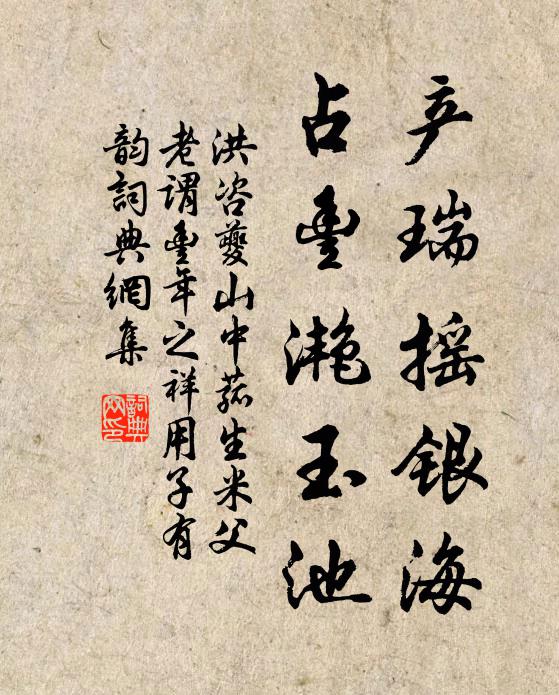 产瑞摇银海
占豊滟玉池
洪咨夔山中菰生米父
老谓豊年之祥用子有
韵詞典網集
詞典網印